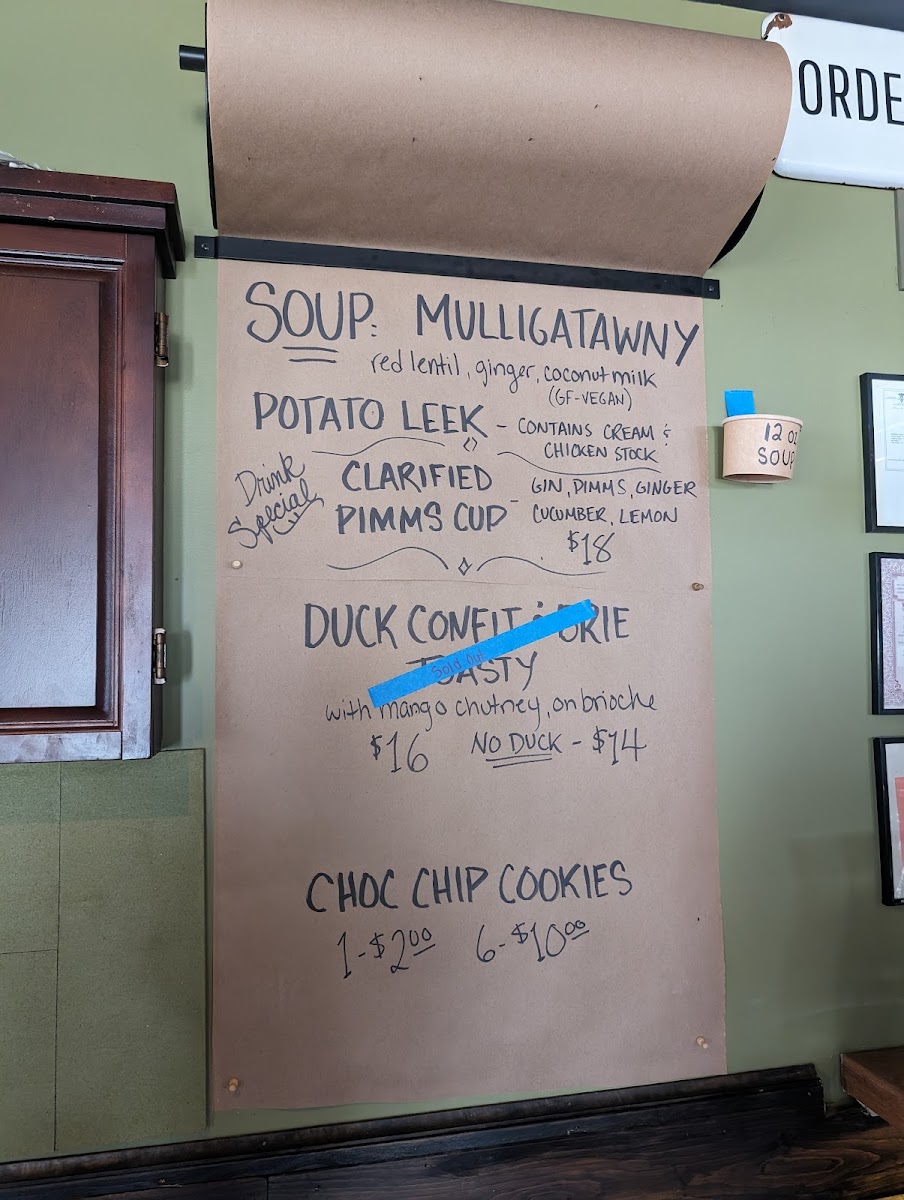 ORDE
SOUP: MULLIGATAWNY
red lentil, ginger, coconut milk
(GF-VEGAN)
POTATO LEEK - CONTAINS CREAM &
CHICKEN STOCK
12 OZ
SOUP
Drink
Special
CLARIFIED
PIMMS CUP - GIN, PIMMS, GINGER
CUCUMBER, LEMON
$18
DUCK CONFIT & BRIE
TOASTY
Sold out
with mango chutney, on brioche
$16 NO DUCK - $14
CHOC CHIP COOKIES
1-$2.00 6-$10.00